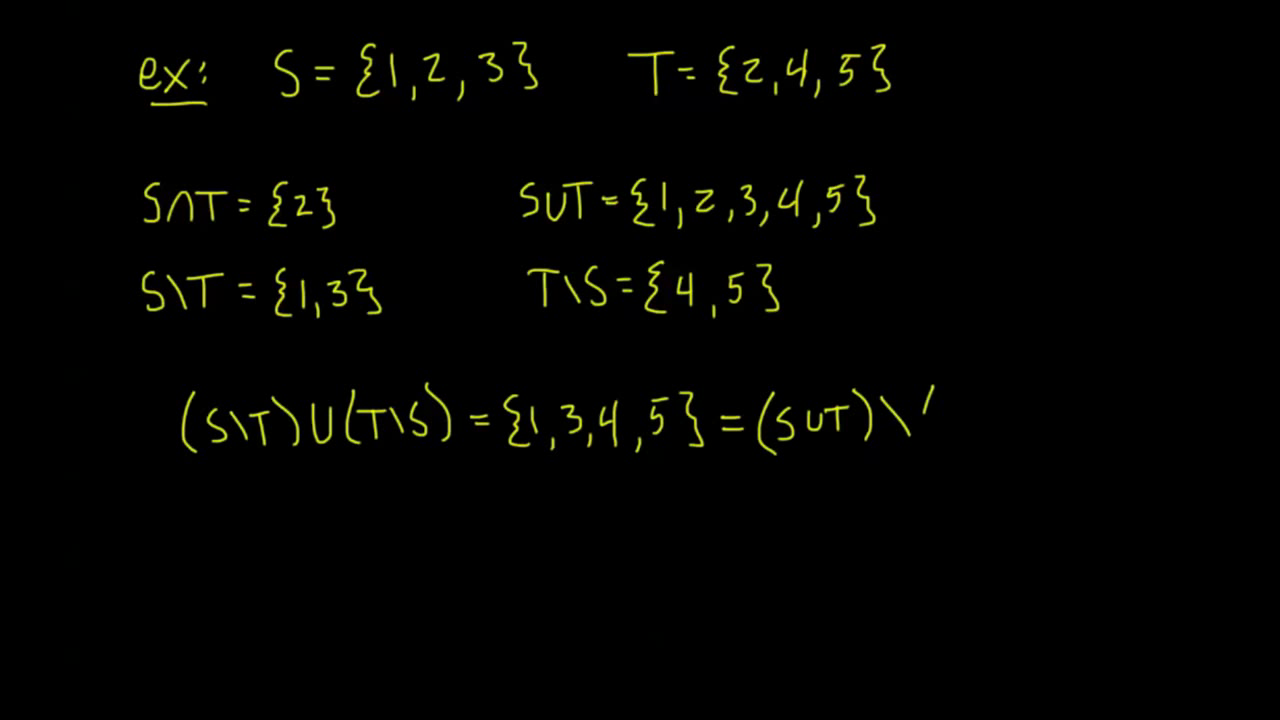 ex: S = {1, 2, 3} T = {2, 4, 5}
S∩T = {2} S∪T = {1, 2, 3, 4, 5}
S\T = {1, 3} T\S = {4, 5}
(S\T) ∪ (T\S) = {1, 3, 4, 5} = (S∪T) \